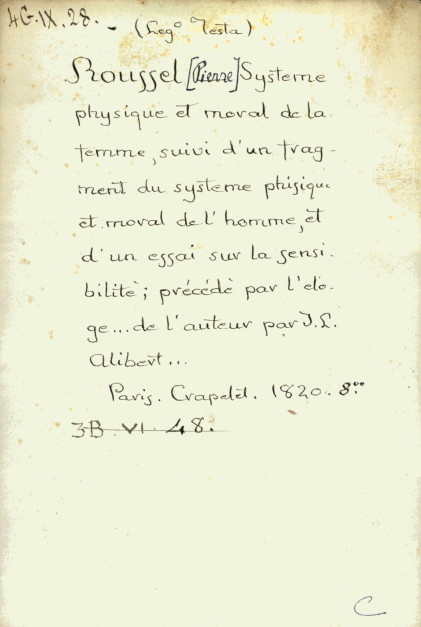 4G.IX.28. - (Leg° Testa)
Roussel [Pierre] Systeme
physique et moral de la
femme, suivi d'un frag-
ment du systeme phisique
et moral de l'homme, et
d'un essai sur la sensi-
bilité; précédè par l'elo-
ge... de l'auteur par J.L.
Alibert...
Paris. Crapelet. 1820. 8vo
3B.VI.48.
C